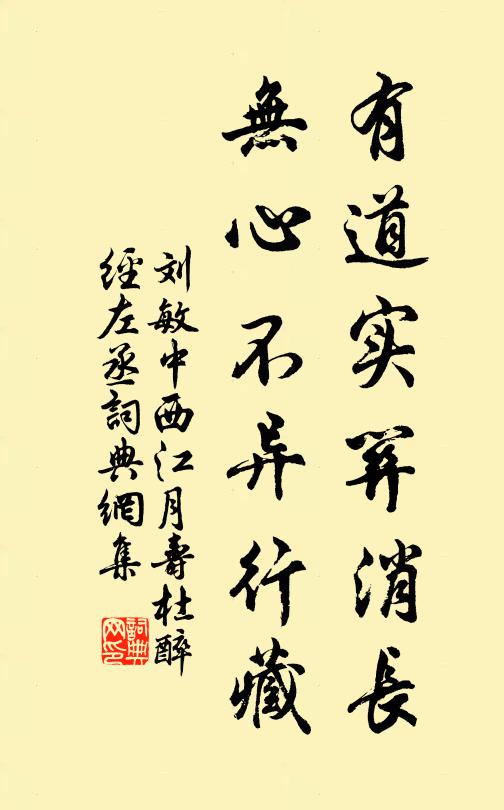 有道实关消長
無心不异行藏
刘敏中西江月壽杜醉
經左丞詞典網集
詞典
网印